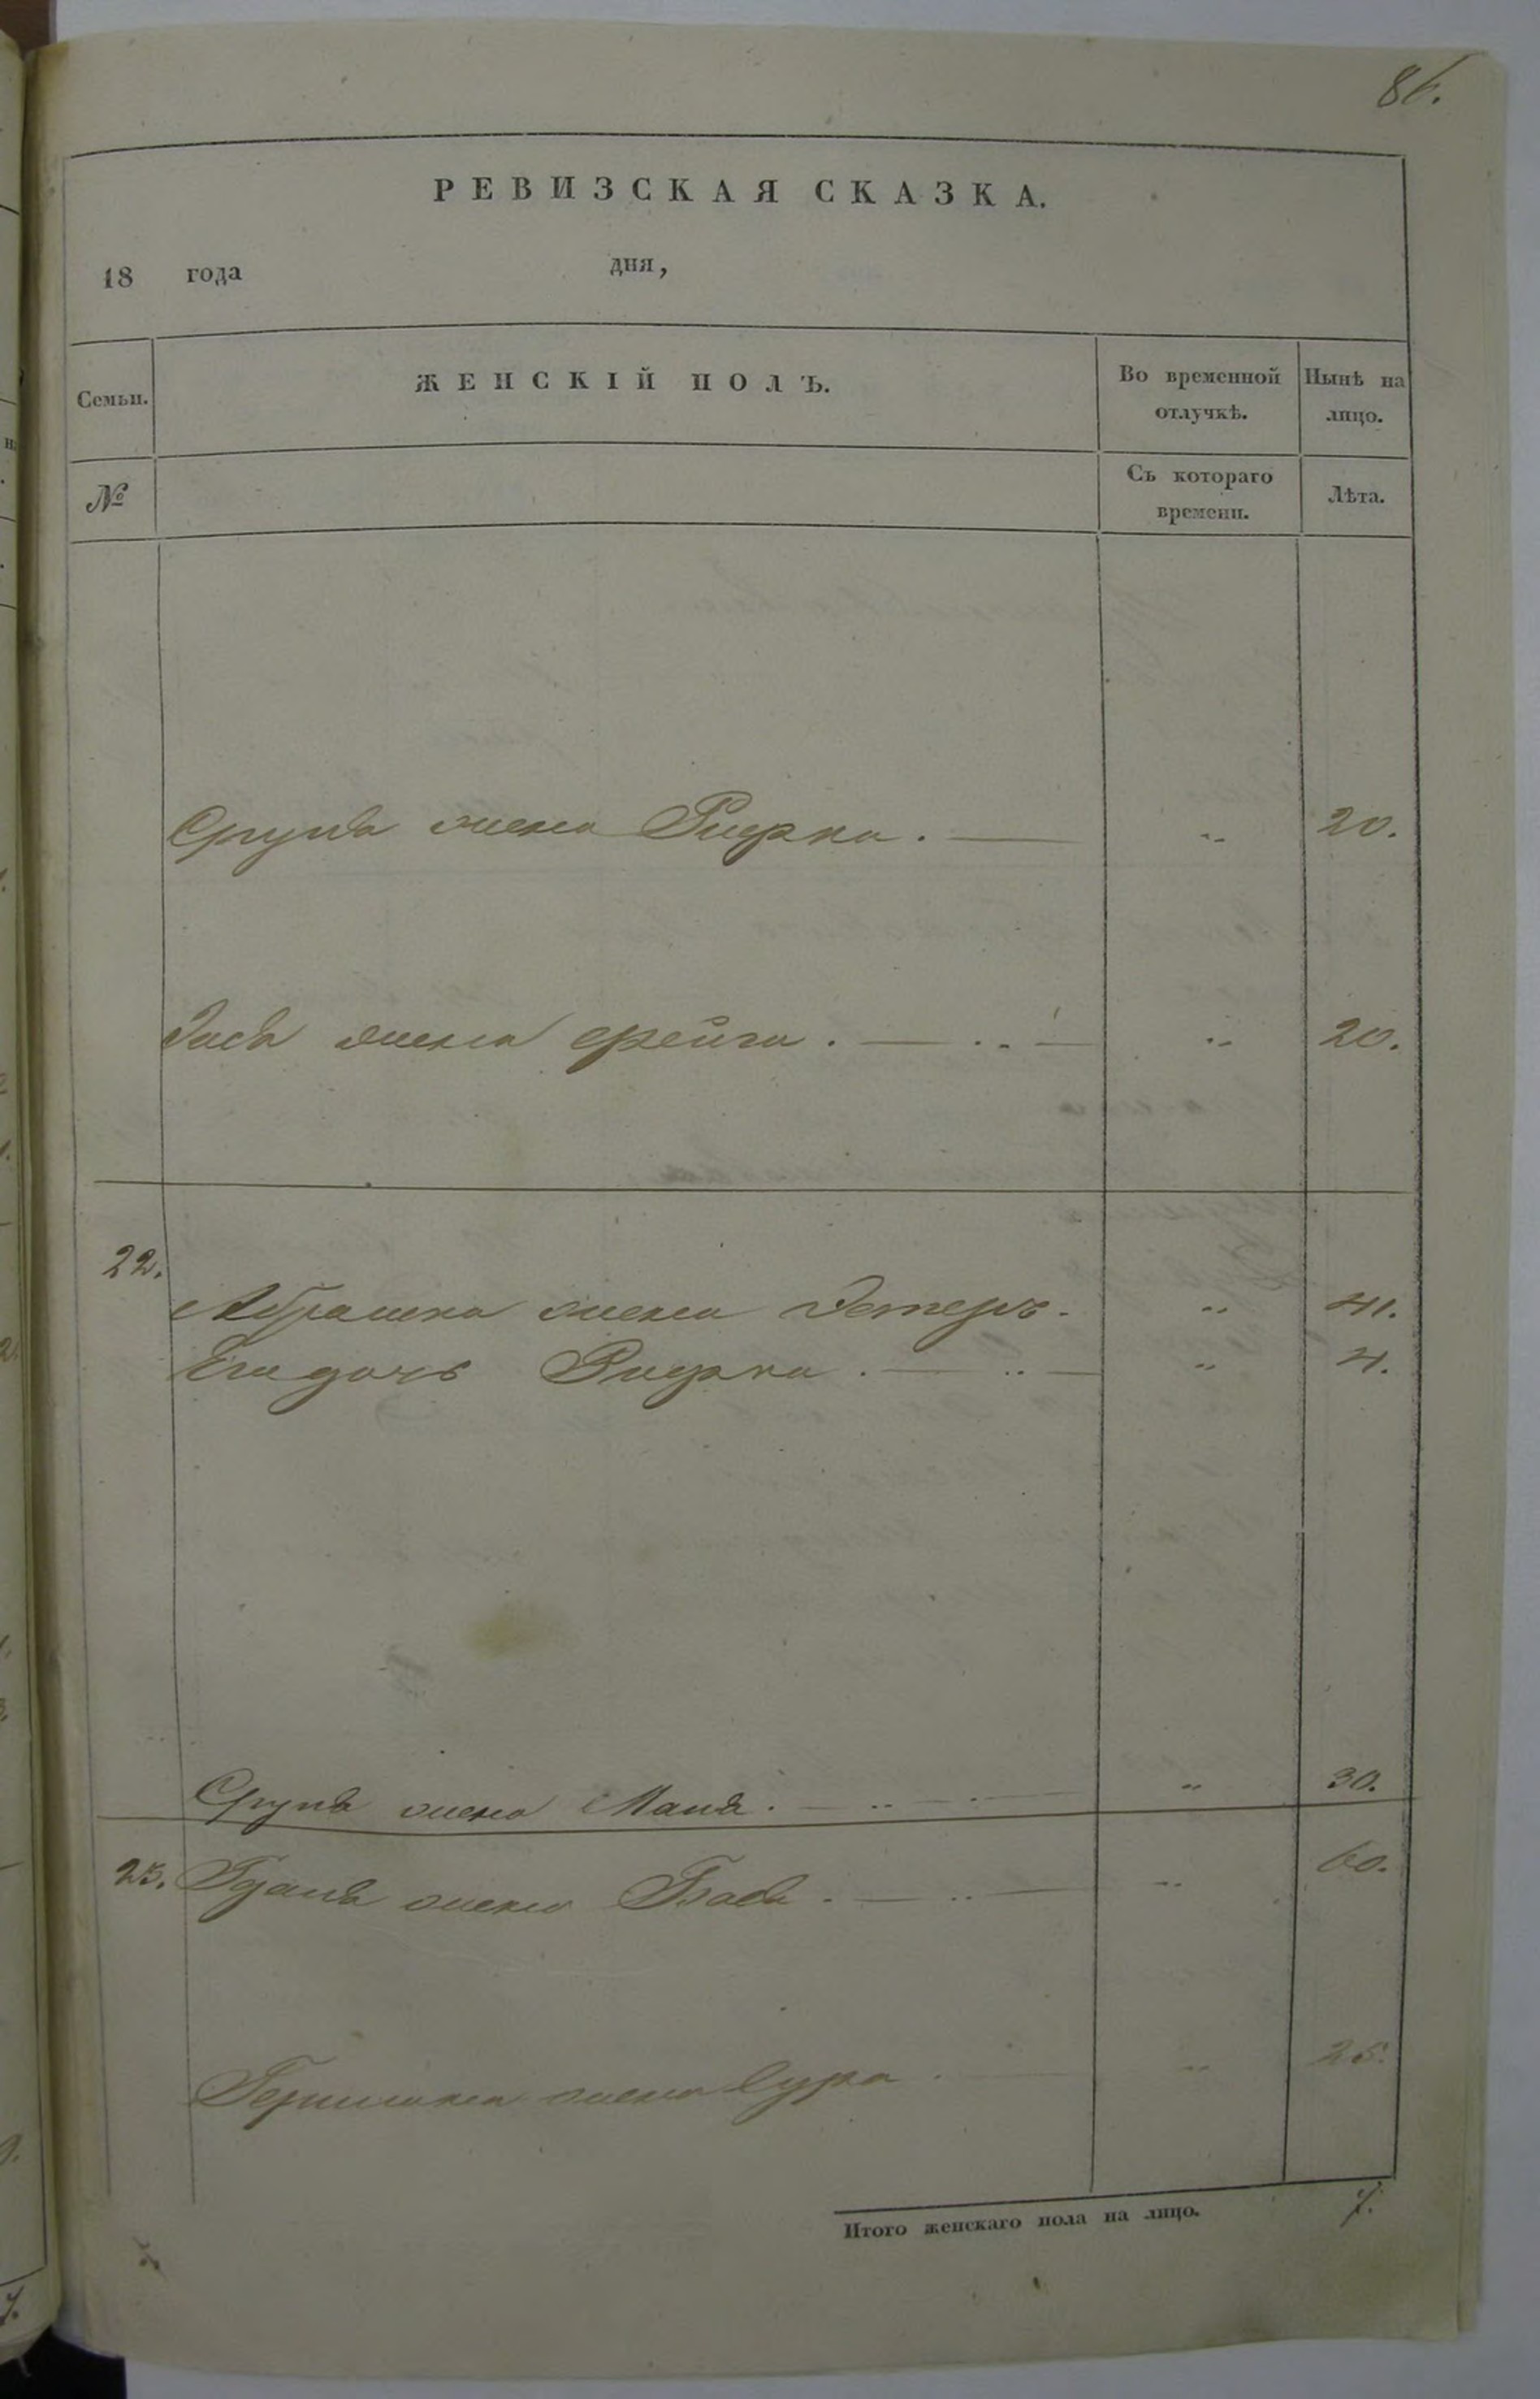 86.
РЕВИЗСКАЯ СКАЗКА.
18 года дня,
Семьи. ЖЕНСКІЙ ПОЛЪ. Во временной отлучкѣ. Нынѣ на лицо.
№ Съ котораго времени. Лѣта.
Сруля жена Ривка. 20.
жена Фейга. 20.
22.
Абрамка жена Эстеръ. 41.
Его дочь Ривка. 4.
Сруля жена Маля. 30.
23. жена Бася. 60.
Гершка жена Сура 25.
Итого женскаго пола на лицо. 7.